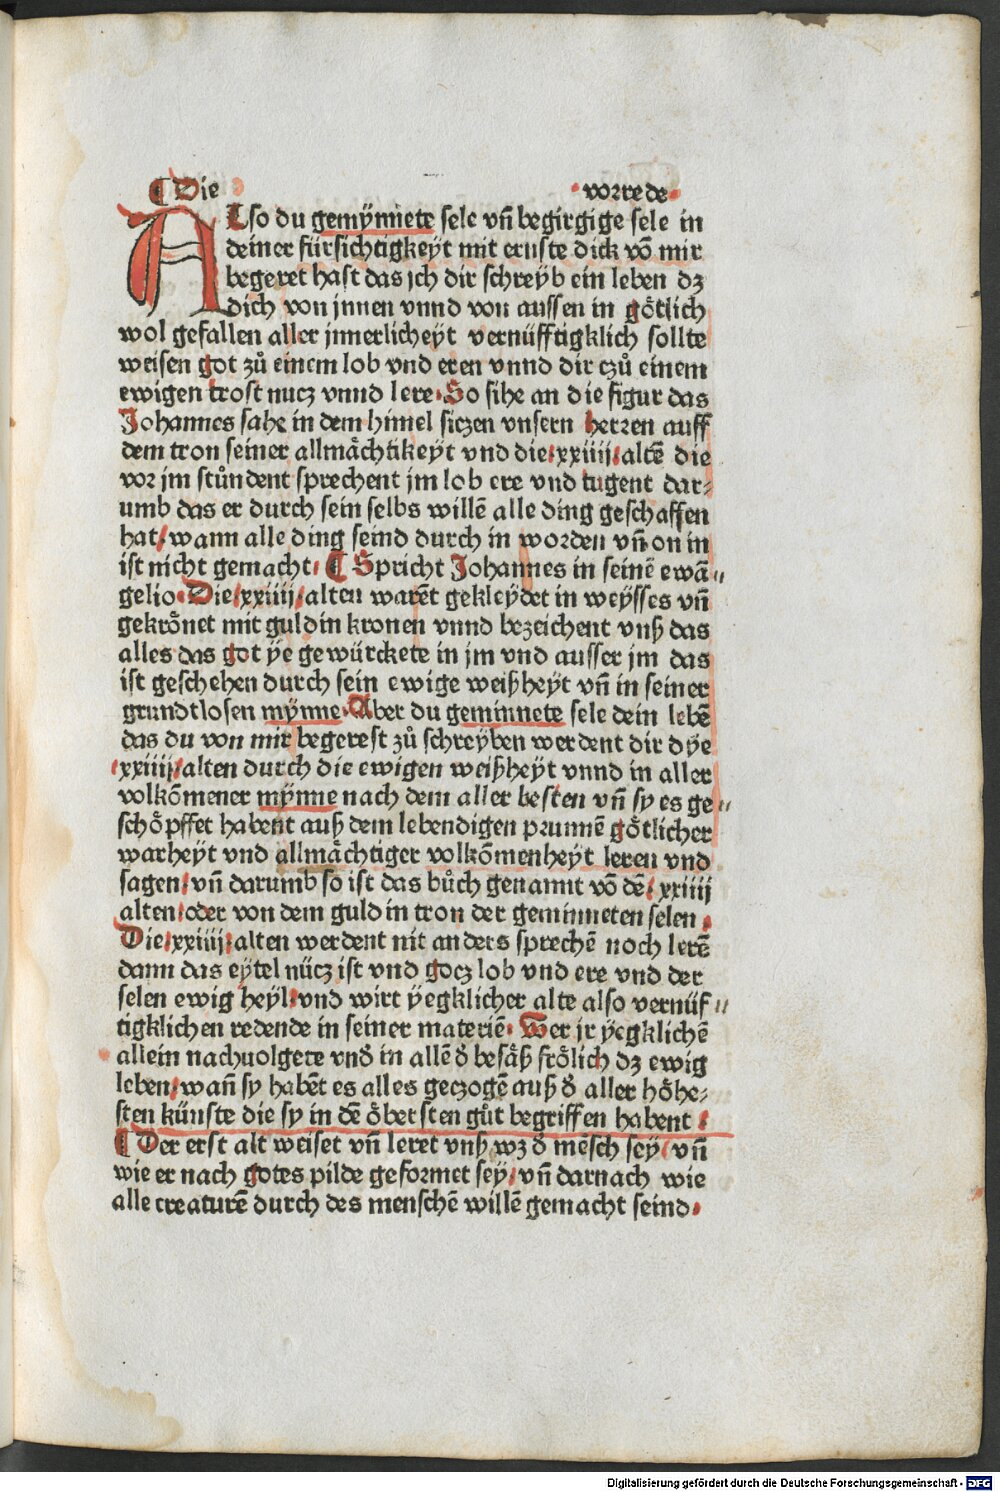 ¶ Die vorrede
ALso du gemynnete sele vn̄ begirgige sele in
deiner fürsichtigkeyt mit ernste dick vō mir
begeret hast das jch dir schreyb ein leben dz
dich von jnnen vnnd von aussen in gȫtlich
wol gefallen aller jnnerlicheyt vernüfftigklich sollte
weisen got zů einem lob vnd eren vnnd dir czů einem
ewigen trost nucz vnnd lere. So sihe an die figur das
Johannes sahe in dem himel siczen vnsern herren auff
dem tron seiner allmåchtikeyt vnd die .xxiiij. altē die
vor jm stůndent sprechent jm lob ere vnd tugent dar⸗
umb das er durch sein selbs willē alle ding geschaffen
hat/ wann alle ding seind durch in worden vn̄ on in
ist nicht gemacht. ¶ Spricht Johannes in seinē ewā⸗
gelio. Die .xxiiij. alten warēt gekleydet in weysses vn̄
gekrȫnet mit guldin kronen vnnd bezeichent vnß das
alles das got ÿe gewürckete in jm vnd ausser jm das
ist geschehen durch sein ewige weißheyt vn̄ in seiner
grundtlosen mÿnne. Aber du geminnete sele dein lebē
das du von mir begerest zů schreyben werdent dir dÿe
.xxiiij. alten durch die ewigen weißheyt vnnd in aller
volkōmener mÿnne nach dem aller besten vn̄ sy es ge⸗
schȫpffet habent auß dem lebendigen prunnē gȫtlicher
warheyt vnd allmåchtiger volkōmenheyt leren vnd
sagen. vn̄ darumb so ist das bůch genannt vō dē .xxiiij
alten. oder von dem guldin tron der geminneten selen.
Die .xxiiij. alten werdent nit anders sprechē noch lerē
dann das eÿtel nücz ist vnd gocz lob vnd ere vnd der
selen ewig heyl. vnd wirt ÿegklicher alte also vernüf⸗
tigklichen redende in seiner materiē. Wer jr ÿegklichē
allein nachuolgete vnd̓ in allē d̓ besåß frȫlich dz ewig
leben. wan̄ sy habēt es alles geczogē auß d̓ aller hȫhe⸗
sten künste die sy in dē ȫbersten gůt begriffen habent.
¶ Der erst alt weiset vn̄ leret vnß wz d̓ mēsch sey/ vn̄
wie er nach gotes pilde geformet sey/ vn̄ darnach wie
alle creaturē durch des menschē willē gemacht seind.
Digitalisierung gefördert durch die Deutsche Forschungsgemeinschaft - DFG